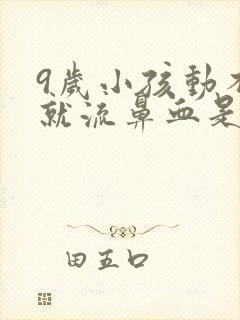 9歲小孩動不
就流鼻血是
田五口